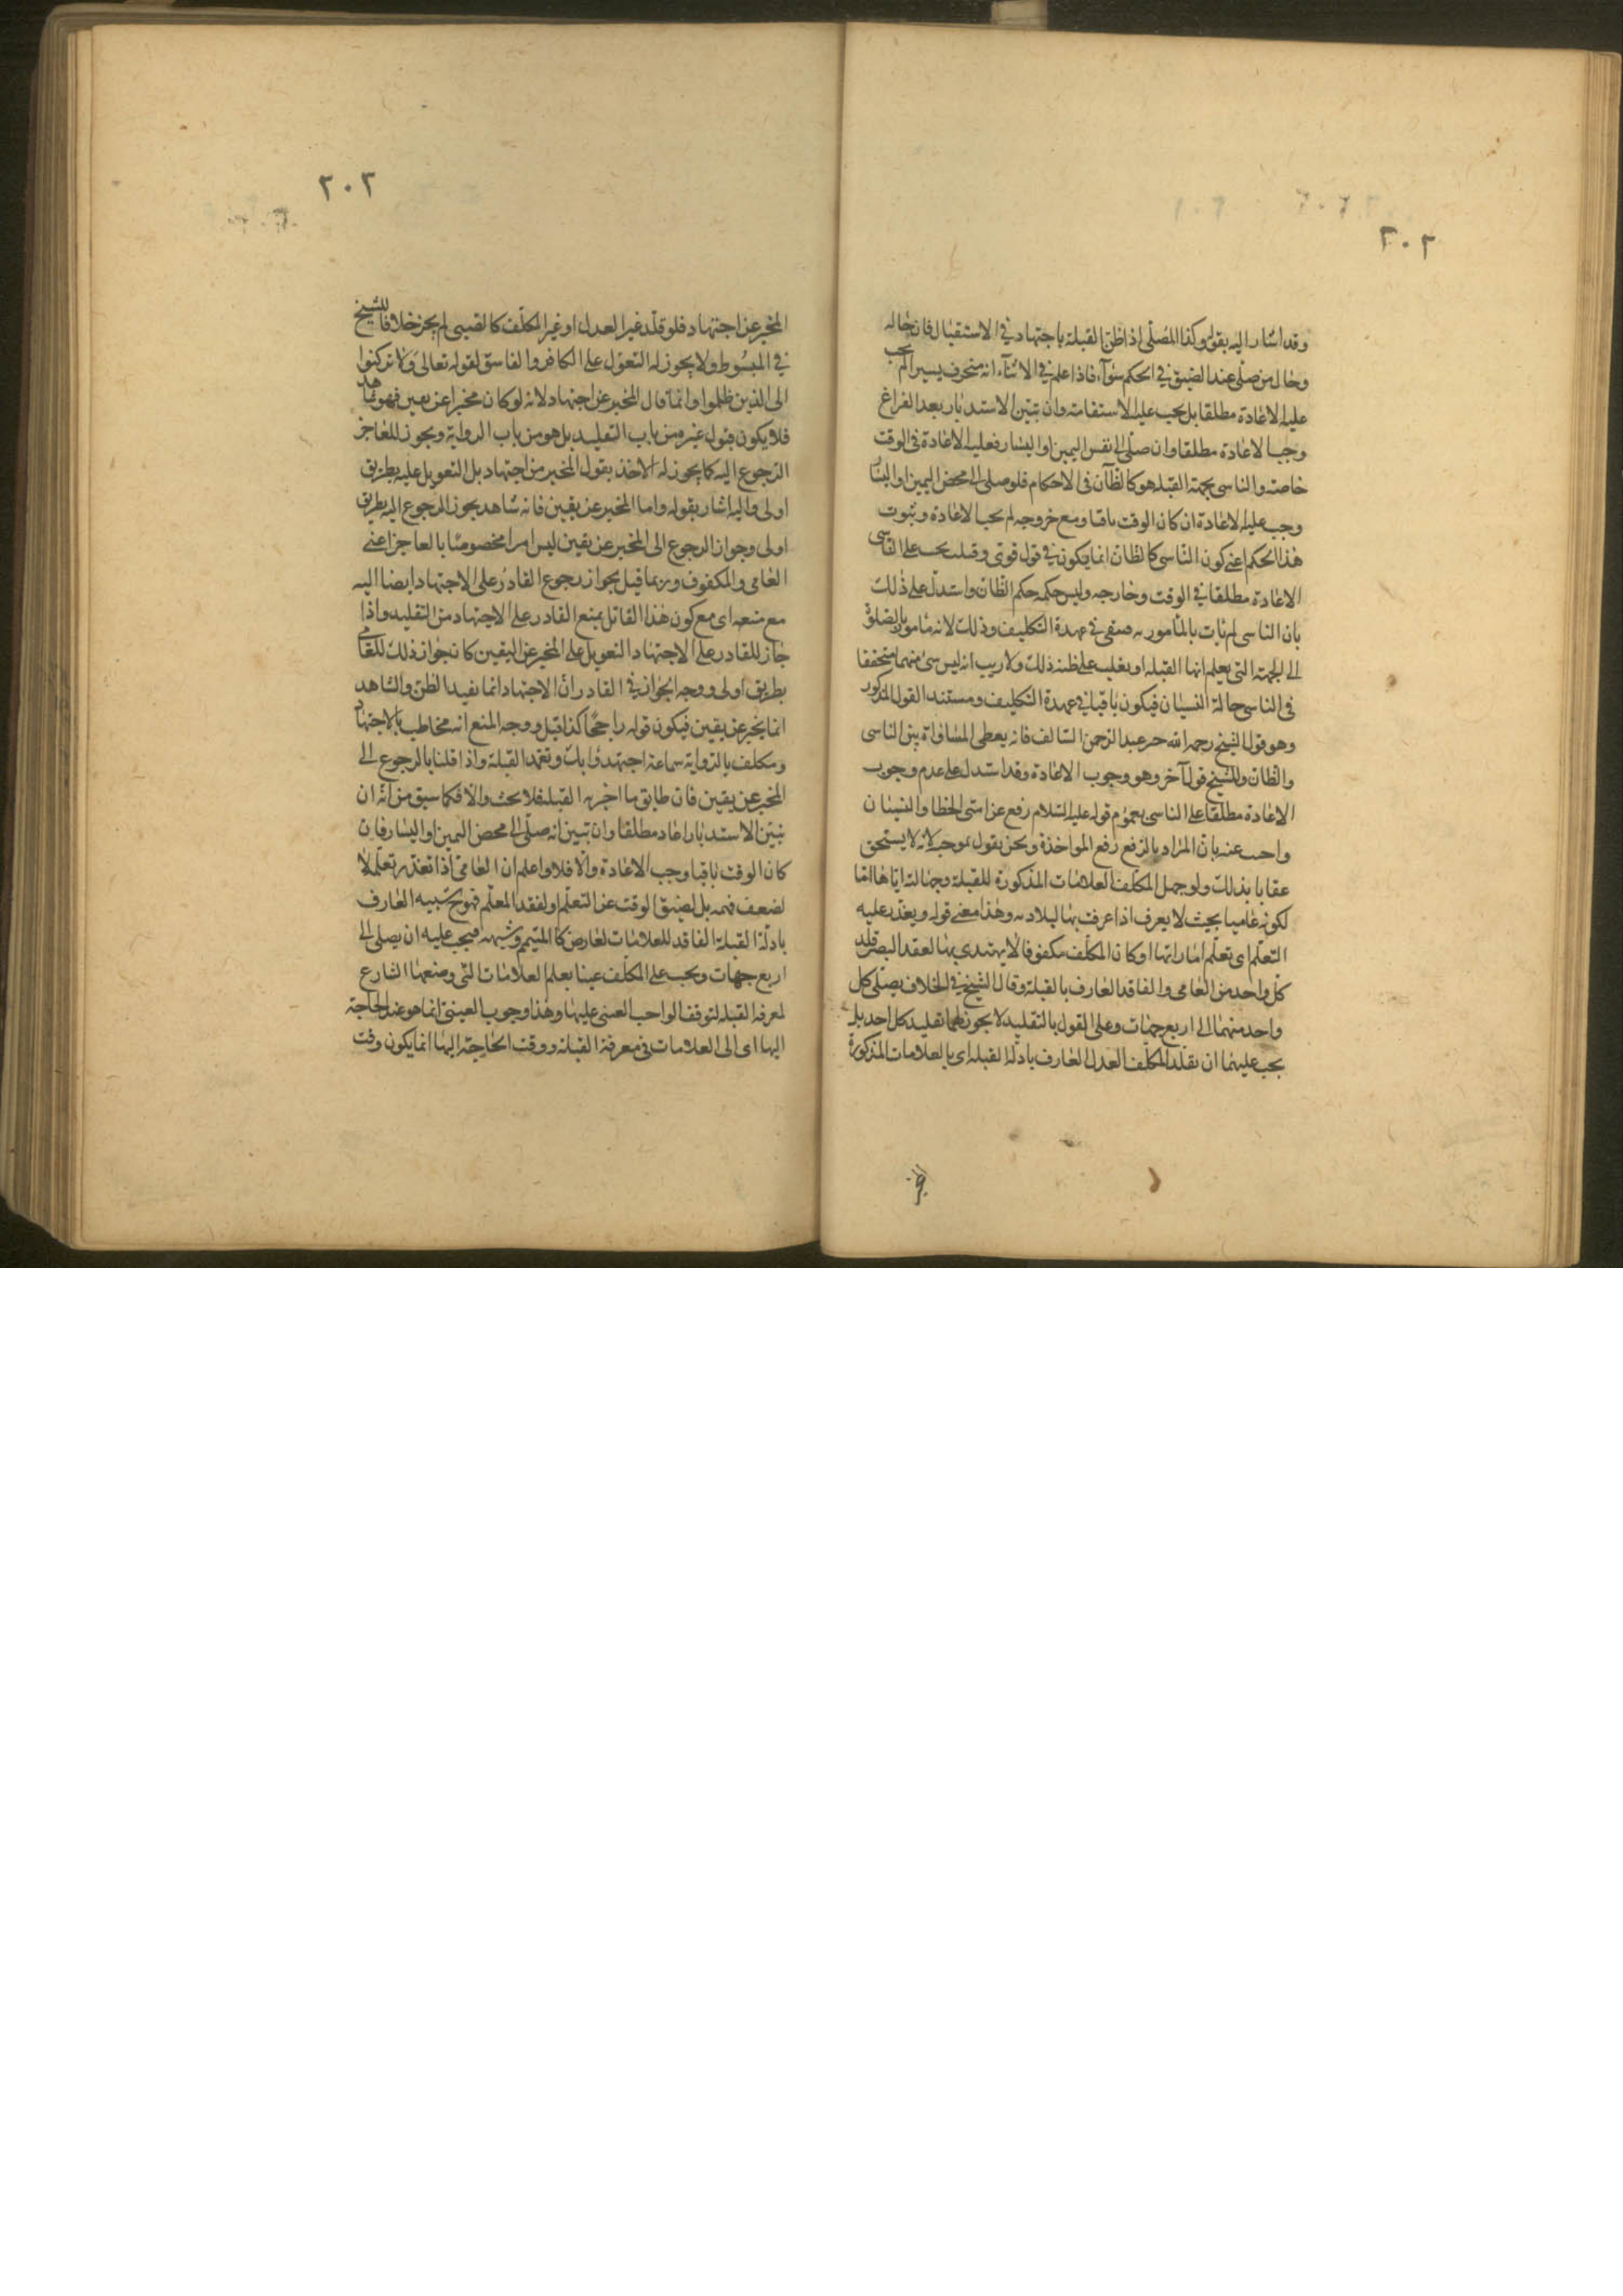 ٢٠٢
وقد اشار اليه بقوله وكذا المصلّى اذا ظن القبلة باجتهاد في الاستقبال فان حاله
وحال من صلّى عند الضيق في الحكم سوآء فاذا علم في الاثناء انه منحرف يسيرا لم يجب
عليه الاعادة مطلقا بل يجب عليه الاستقامة وان تبيّن الاستدبار بعد الفراغ
وجب الاعادة مطلقا وان صلّى الى نفس اليمين او اليسار فعليه الاعادة في الوقت
خاصة والناسى بجهة القبله هو كالظّان في الاحكام فلو صلى الى محض اليمين او اليسار
وجب عليه الاعادة ان كان الوقت باقيا ومع خروجه لم يجب الاعادة وثبوت
هذا الحكم اعنى كون النّاسى كالظان انما يكون في قول قوىّ وقيل يجب على الناسى
الاعادة مطلقا في الوقت وخارجه وليس حكمه حكم الظّان واستدلّ على ذلك
بان الناسى لم يات بالمأمور به فبقى في عهدة التكليف وذلك لانه مأمور بالصلوة
الى الجهة التى يعلم انها القبله او يغلب على ظنه ذلك ولا ريب انه ليس شئ منهما متحققا
في الناسى حالة النسيان فيكون باقيا في عهدة التكليف ومستند القول المذكور
وهو قول الشيخ رحمه الله خبر عبد الرحمن السّالف فانه يعطى المساواة بين الناسى
والظان وللشيخ قول آخر وهو وجوب الاعادة وقد استدل على عدم وجوب
الاعادة مطلقا على الناسى بعموم قوله عليه السّلام رفع عن امتى الخطا والنسيان
واجيب عنه بان المراد بالرفع رفع المواخذة ونحن نقول بموجبه لانه لا يستحق
عقابا بذلك ولو جهل المكلّف العلامات المذكورة للقبلة وجهالته اياها امّا
لكونه عاميا بحيث لا يعرف اذا عرف بها لبلادته وهذا معنى قوله ويعذّر عليه
التعلّم اى تعلّم اماراتها او كان المكلّف مكفوفا لا يهتدى بها لعقد البصر قلد
كل واحد من العامى والفاقد العارف بالقبلة وقال الشيخ في الخلاف يصلّى كل
واحد منهما الى اربع جهات وعلى القول بالتقليد لا يجوز لهما تقليد كل احد بل
يجب عليهما ان يقلّد المكلّف العدل العارف بادلّة القبله اى بالعلامات المذكورة
٢٠٣
المخبر عن اجتهاد فلو قلّد غير العدل او غير المكلّف كالصبى لم يجز خلافا للشيخ
في المبسوط ولا يجوز له التعوّل على الكافر والفاسق لقوله تعالى ولا تركنوا
الى الذين ظلموا وانما قال المخبر عن اجتهاد لانه لو كان مخبرا عن يقين فهو شاهد
فلا يكون قبول غيره من باب التقليد بل هو من باب الرواية ويجوز للعاجز
الرجوع اليه كما يجوز له الاخذ بقول المخبر من اجتهاد بل التعويل عليه بطريق
اولى واليه اشار بقوله واما المخبر عن يقين فانه شاهد يجوز الرجوع اليه بطريق
اولى وجواز الرجوع الى المخبر عن يقين ليس امرا مخصوصا بالعاجز اعنى
العامى والمكفوف وربما قيل بجواز رجوع القادر على الاجتهاد ايضا اليه
مع منعه اى مع كون هذا القائل يمنع القادر على الاجتهاد من التقليد واذا
جاز للقادر على الاجتهاد التعويل على المخبر عن اليقين كان جواز ذلك للعامى
بطريق اولى ووجه الجواز في القادر انّ الاجتهاد انما يفيد الظن والشاهد
انما يخبر عن يقين فيكون قوله راجحا كذا قيل ووجه المنع انه مخاطب بالاجتهاد
ومكلف بالرواية سماعة اجتهد رايك وتعمد القبلة واذا قلنا بالرجوع الى
المخبر عن يقين فان طابق ما اخبر به القبله فلا بحث والّا فكما سبق من انّه ان
تبيّن الاستدبار اعاد مطلقا وان تبيّن انه صلّى الى محض اليمين او اليسار فان
كان الوقت باقيا وجب الاعادة والّا فلا واعلم ان العامىّ اذا تعذّر تعلّمه لا
لضعف فهمه بل لضيق الوقت عن التعلّم او لفقد المعلّم فهو شبيه العارف
بادلّة القبلة الفاقد للعلامات لعارض كالغيم وشبهه فيجب عليه ان يصلى الى
اربع جهات ويجب على المكلّف عينا تعلم العلامات التى وضعها الشارع
لمعرفة القبله لتوقف الواجب العينى عليها وهذا وجوب العينىّ انما هو عند الحاجة
اليها اى الى العلامات في معرفة القبلة ووقت الحاجة اليها انما يكون وقت